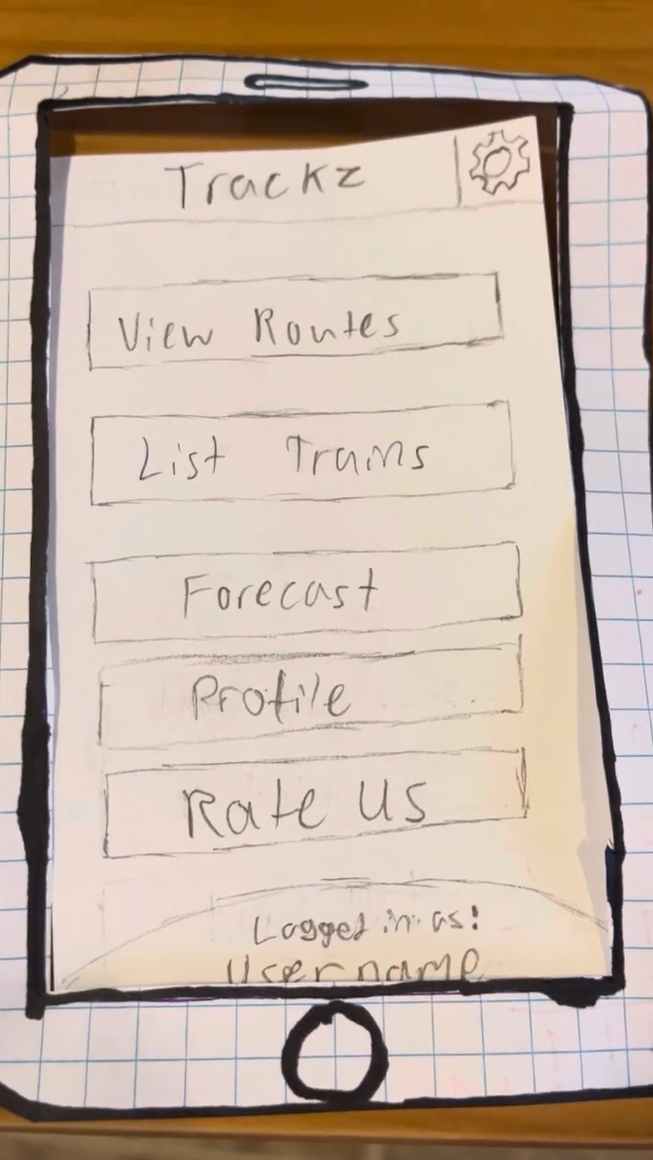 Trackz
View Routes
List Trains
Forecast
Profile
Rate Us
Logged in as:
Username